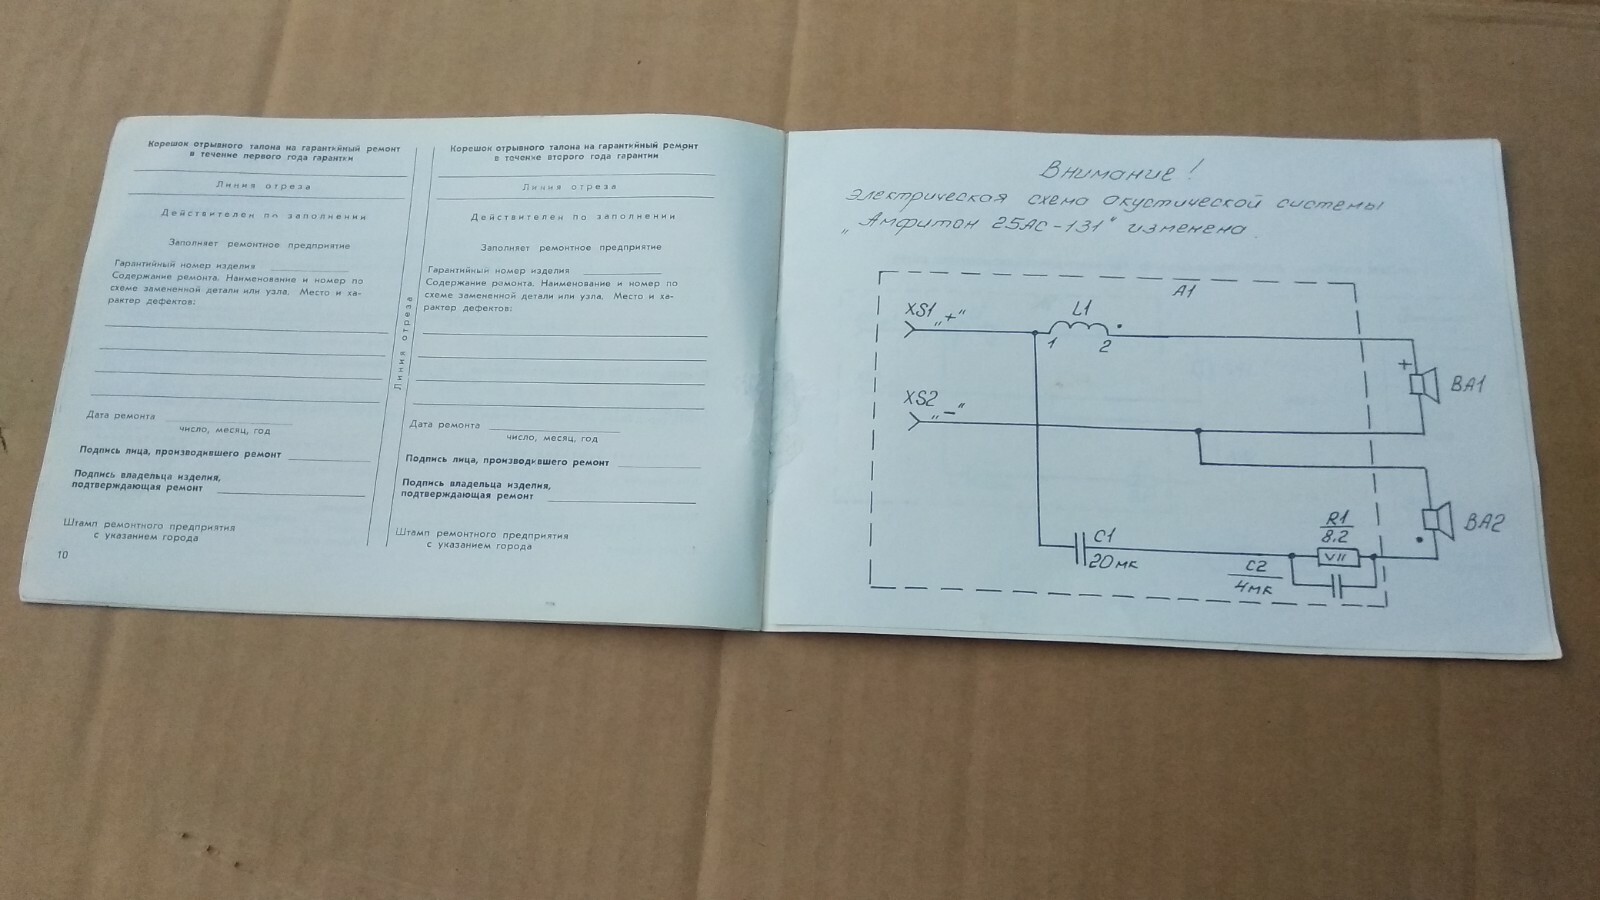 Корешок отрывного талона на гарантийный ремонт
в течение первого года гарантии
Линия отреза
Действителен по заполнении
Заполняет ремонтное предприятие
Гарантийный номер изделия
Содержание ремонта. Наименование и номер по
схеме замененной детали или узла. Место и ха-
рактер дефектов:
Дата ремонта
число, месяц, год
Подпись лица, производившего ремонт
Подпись владельца изделия,
подтверждающая ремонт
Штамп ремонтного предприятия
с указанием города
10
Линия отреза
Корешок отрывного талона на гарантийный ремонт
в течение второго года гарантии
Линия отреза
Действителен по заполнении
Заполняет ремонтное предприятие
Гарантийный номер изделия
Содержание ремонта. Наименование и номер по
схеме замененной детали или узла. Место и ха-
рактер дефектов:
Дата ремонта
число, месяц, год
Подпись лица, производившего ремонт
Подпись владельца изделия,
подтверждающая ремонт
Штамп ремонтного предприятия
с указанием города
Внимание!
Электрическая схема акустической системы
„Амфитон 25АС-131" изменена.
A1
XS1 „+"
L1
1 2
+
BA1
XS2 „−"
BA2
R1
8.2
VII
C1
20мк
C2
4мк